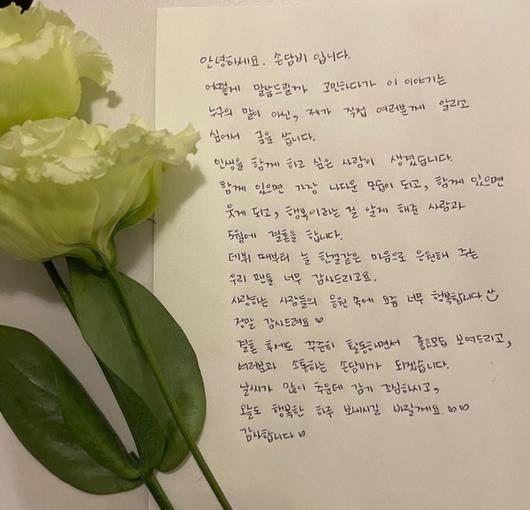 안녕하세요. 손담비 입니다.
어떻게 말씀드릴까 고민하다가 이 이야기는
누구의 말이 아닌, 제가 직접 여러분께 알리고
싶어서 글을 씁니다.
인생을 함께 하고 싶은 사람이 생겼습니다.
함께 있으면 가장 나다운 모습이 되고, 함께 있으면
웃게 되고, 행복이라는 걸 알게 해준 사람과
5월에 결혼을 합니다.
데뷔 때부터 늘 한결같은 마음으로 응원해 주는
우리 팬들 너무 감사드리고요.
사랑하는 사람들의 응원 속에 요즘 너무 행복합니다
정말 감사드려요 ♡
결혼 후에도 꾸준히 활동하면서 좋은모습 보여드리고,
여러분과 소통하는 손담비가 되겠습니다.
날씨가 많이 추운데 감기 조심하시고,
오늘도 행복한 하루 보내시길 바랄게요 ♡♡
감사합니다 ♡